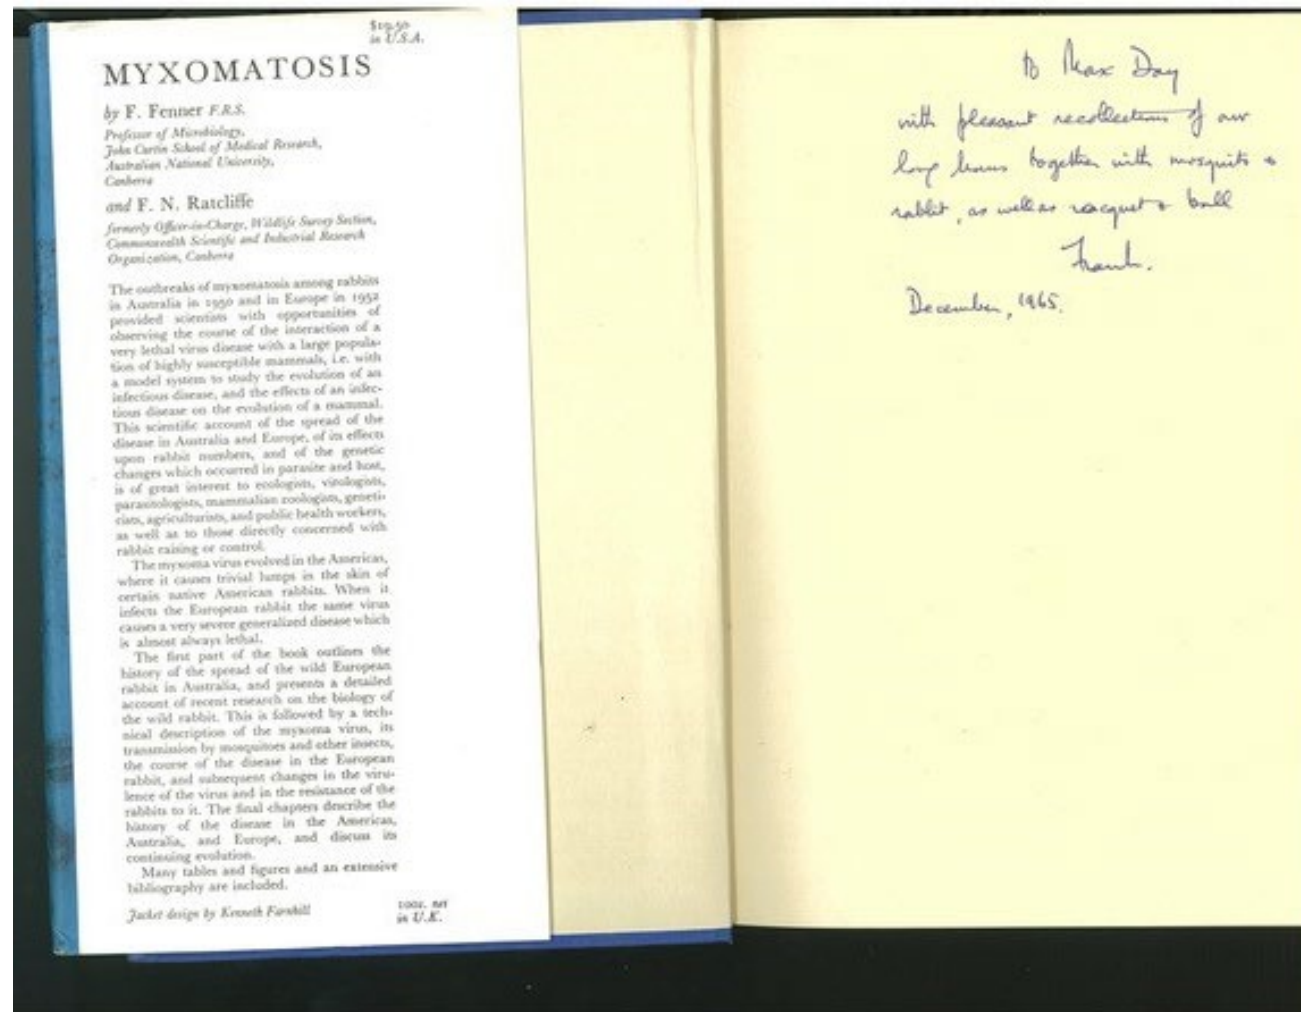 $19.50
in U.S.A.
MYXOMATOSIS
by F. Fenner F.R.S.
Professor of Microbiology,
John Curtin School of Medical Research,
Australian National University,
Canberra
and F. N. Ratcliffe
formerly Officer-in-Charge, Wildlife Survey Section,
Commonwealth Scientific and Industrial Research
Organization, Canberra
The outbreaks of myxomatosis among rabbits
in Australia in 1950 and in Europe in 1952
provided scientists with opportunities of
observing the course of the interaction of a
very lethal virus disease with a large popula-
tion of highly susceptible mammals, i.e. with
a model system to study the evolution of an
infectious disease, and the effects of an infec-
tious disease on the evolution of a mammal.
This scientific account of the spread of the
disease in Australia and Europe, of its effects
upon rabbit numbers, and of the genetic
changes which occurred in parasite and host,
is of great interest to ecologists, virologists,
parasitologists, mammalian zoologists, geneti-
cists, agriculturists, and public health workers,
as well as to those directly concerned with
rabbit raising or control.
The myxoma virus evolved in the Americas,
where it causes trivial lumps in the skin of
certain native American rabbits. When it
infects the European rabbit the same virus
causes a very severe generalized disease which
is almost always lethal.
The first part of the book outlines the
history of the spread of the wild European
rabbit in Australia, and presents a detailed
account of recent research on the biology of
the wild rabbit. This is followed by a tech-
nical description of the myxoma virus, its
transmission by mosquitoes and other insects,
the course of the disease in the European
rabbit, and subsequent changes in the viru-
lence of the virus and in the resistance of the
rabbits to it. The final chapters describe the
history of the disease in the Americas,
Australia, and Europe, and discuss its
continuing evolution.
Many tables and figures and an extensive
bibliography are included.
Jacket design by Kenneth Farnhill
100s. net
in U.K.
To Max Day
with pleasant recollections of our
long hours together with mosquito &
rabbit, as well as racquet & ball
Frank.
December, 1965.